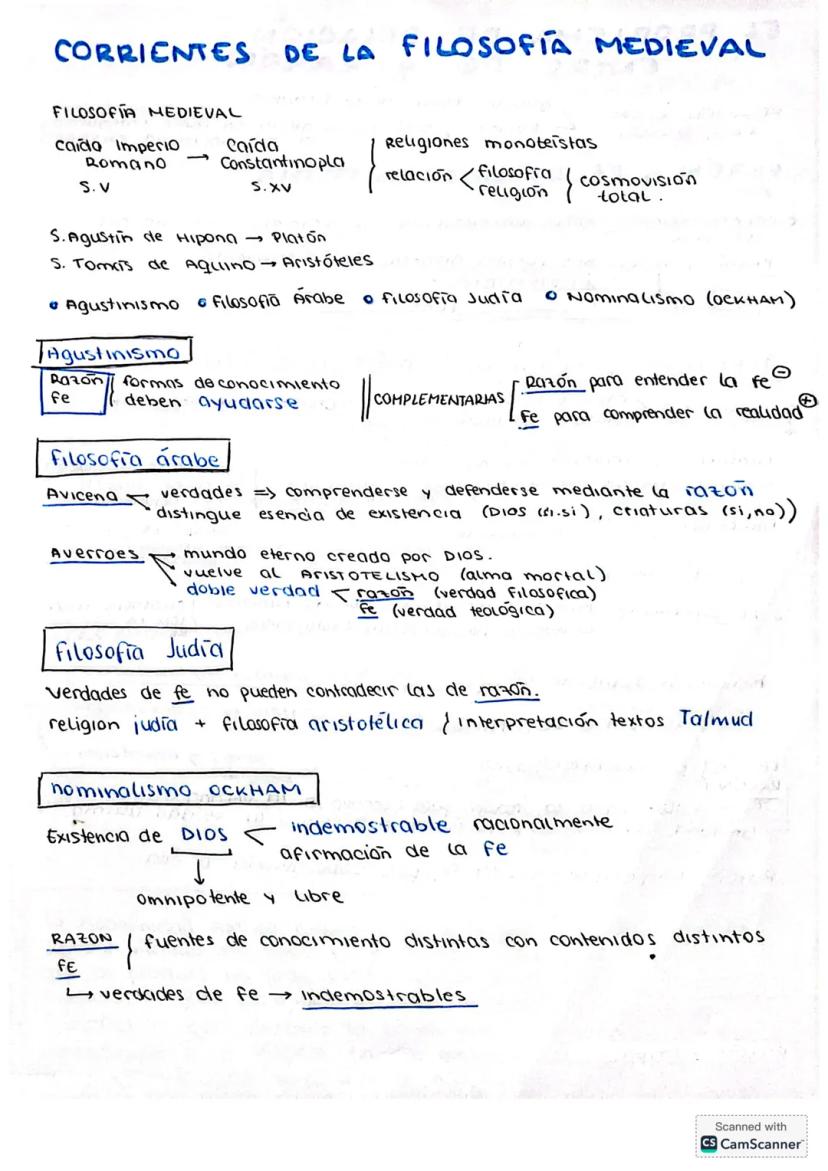 CORRIENTES DE LA FILOSOFÍA MEDIEVAL
FILOSOFÍA MEDIEVAL
Caída Imperio Romano → Caída Constantinopla
S.V S.XV
Religiones monoteístas
relación < filosofía religión } cosmovisión total.
S. Agustín de Hipona → Platón
S. Tomás de Aquino → Aristóteles
• Agustinismo • Filosofía Árabe • Filosofía Judía • Nominalismo (OCKHAM)
Agustinismo
Razón Fe { formas de conocimiento
deben ayudarse
|| COMPLEMENTARIAS [ Razón para entender la fe ⊖
Fe para comprender la realidad ⊕
Filosofía árabe
Avicena verdades => comprenderse y defenderse mediante la razón
distingue esencia de existencia (DIOS (si.si), criaturas (si,no))
Averroes → mundo eterno creado por DIOS.
vuelve al ARISTOTELISMO (alma mortal)
doble verdad < razón (verdad filosófica)
fe (verdad teológica)
Filosofía Judía
Verdades de fe no pueden contradecir las de razón.
religion judía + filosofía aristotélica { interpretación textos Talmud
nominalismo OCKHAM
Existencia de DIOS < indemostrable racionalmente
afirmación de la Fe
↓
omnipotente y libre
RAZON { fuentes de conocimiento distintas con contenidos distintos
FE
↳ verdades de fe → indemostrables
Scanned with
CS CamScanner